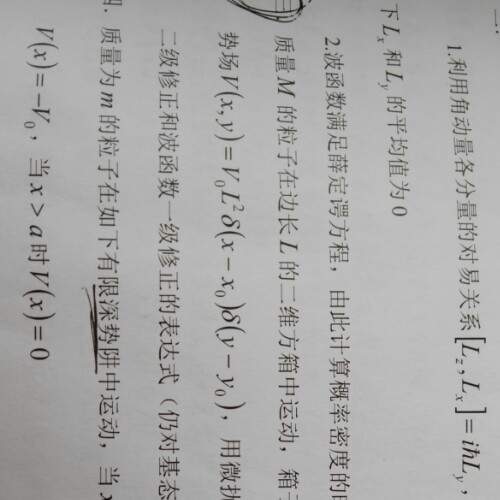 1.利用角动量各分量的对易关系[L_z, L_x]=iħL_y,
下 L_x 和 L_y 的平均值为 0
2.波函数满足薛定谔方程，由此计算概率密度的
质量 M 的粒子在边长 L 的二维方箱中运动，箱
势场V(x,y)=V_0L^2δ(x-x_0)δ(y-y_0)，用微扰
二级修正和波函数一级修正的表达式（仍对基态
四. 质量为m的粒子在如下有限深势阱中运动，当 x
V(x)=-V_0，当x>a时V(x)=0